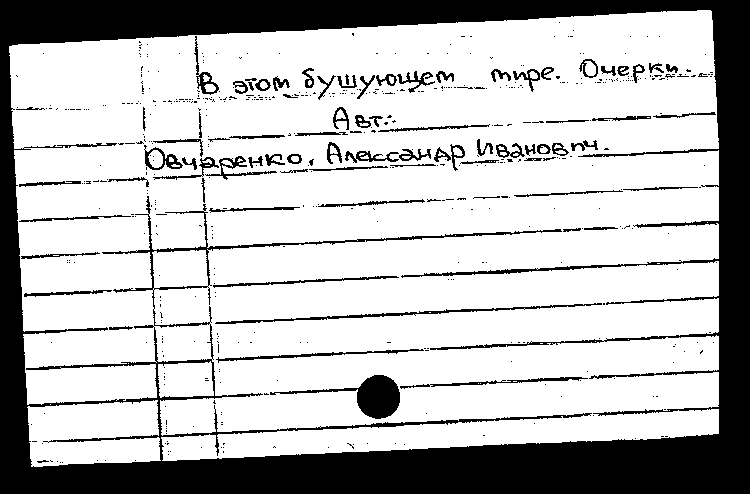 В этом бушующем мире. Очерки.
Авт.:
Овчаренко, Александр Иванович.